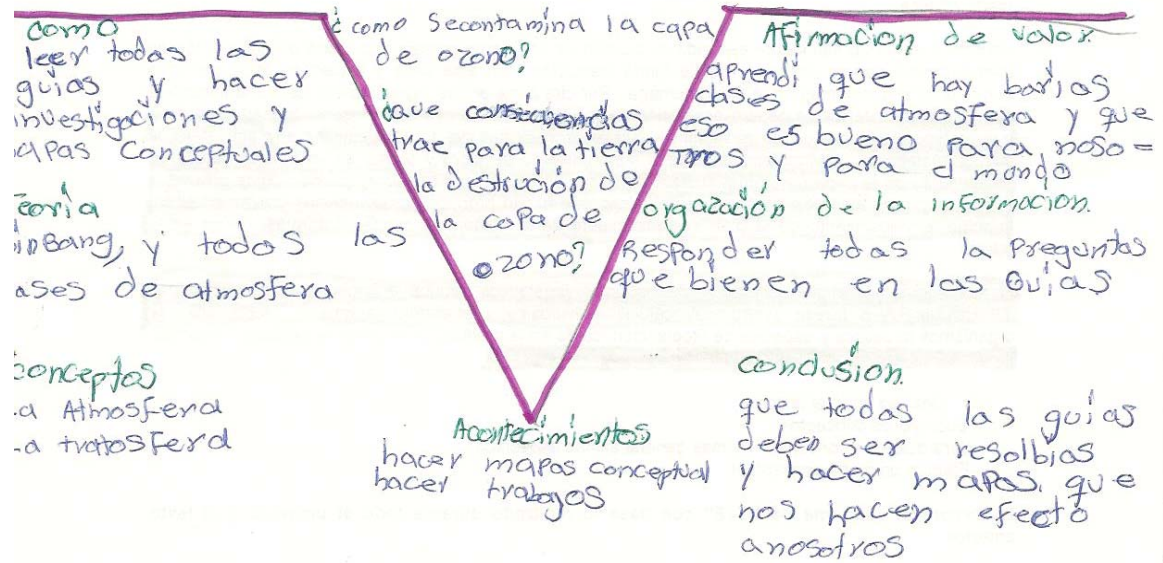 como
leer todas las
guias y hacer
investigaciones y
mapas conceptuales
teoria
binBang, y todos las
ases de atmosfera
conceptos
La Atmosfera
La tratosfera
¿como Secontamina la capa
de ozono?
¿que consecuencias
trae para la tierra
la destrución de
la capa de
ozono?
Acontecimientos
hacer mapas conceptual
hacer trabagos
Afirmacion de valor
aprendi que hay barias
clases de atmosfera y que
eso es bueno para noso=
tros y para el mondo
orgazación de la informacion.
Responder todas la Preguntas
que bienen en las Guias
Conclusion.
que todas las guias
deben ser resolbias
y hacer mapas. que
nos hacen efecto
anosotros